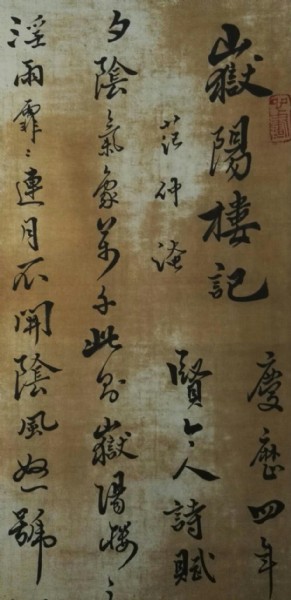 嶽陽樓記
慶歷四年
范仲淹
賢今人詩賦
夕陰氣象萬千此則嶽陽樓之
淫雨霏々連月不開陰風怒號